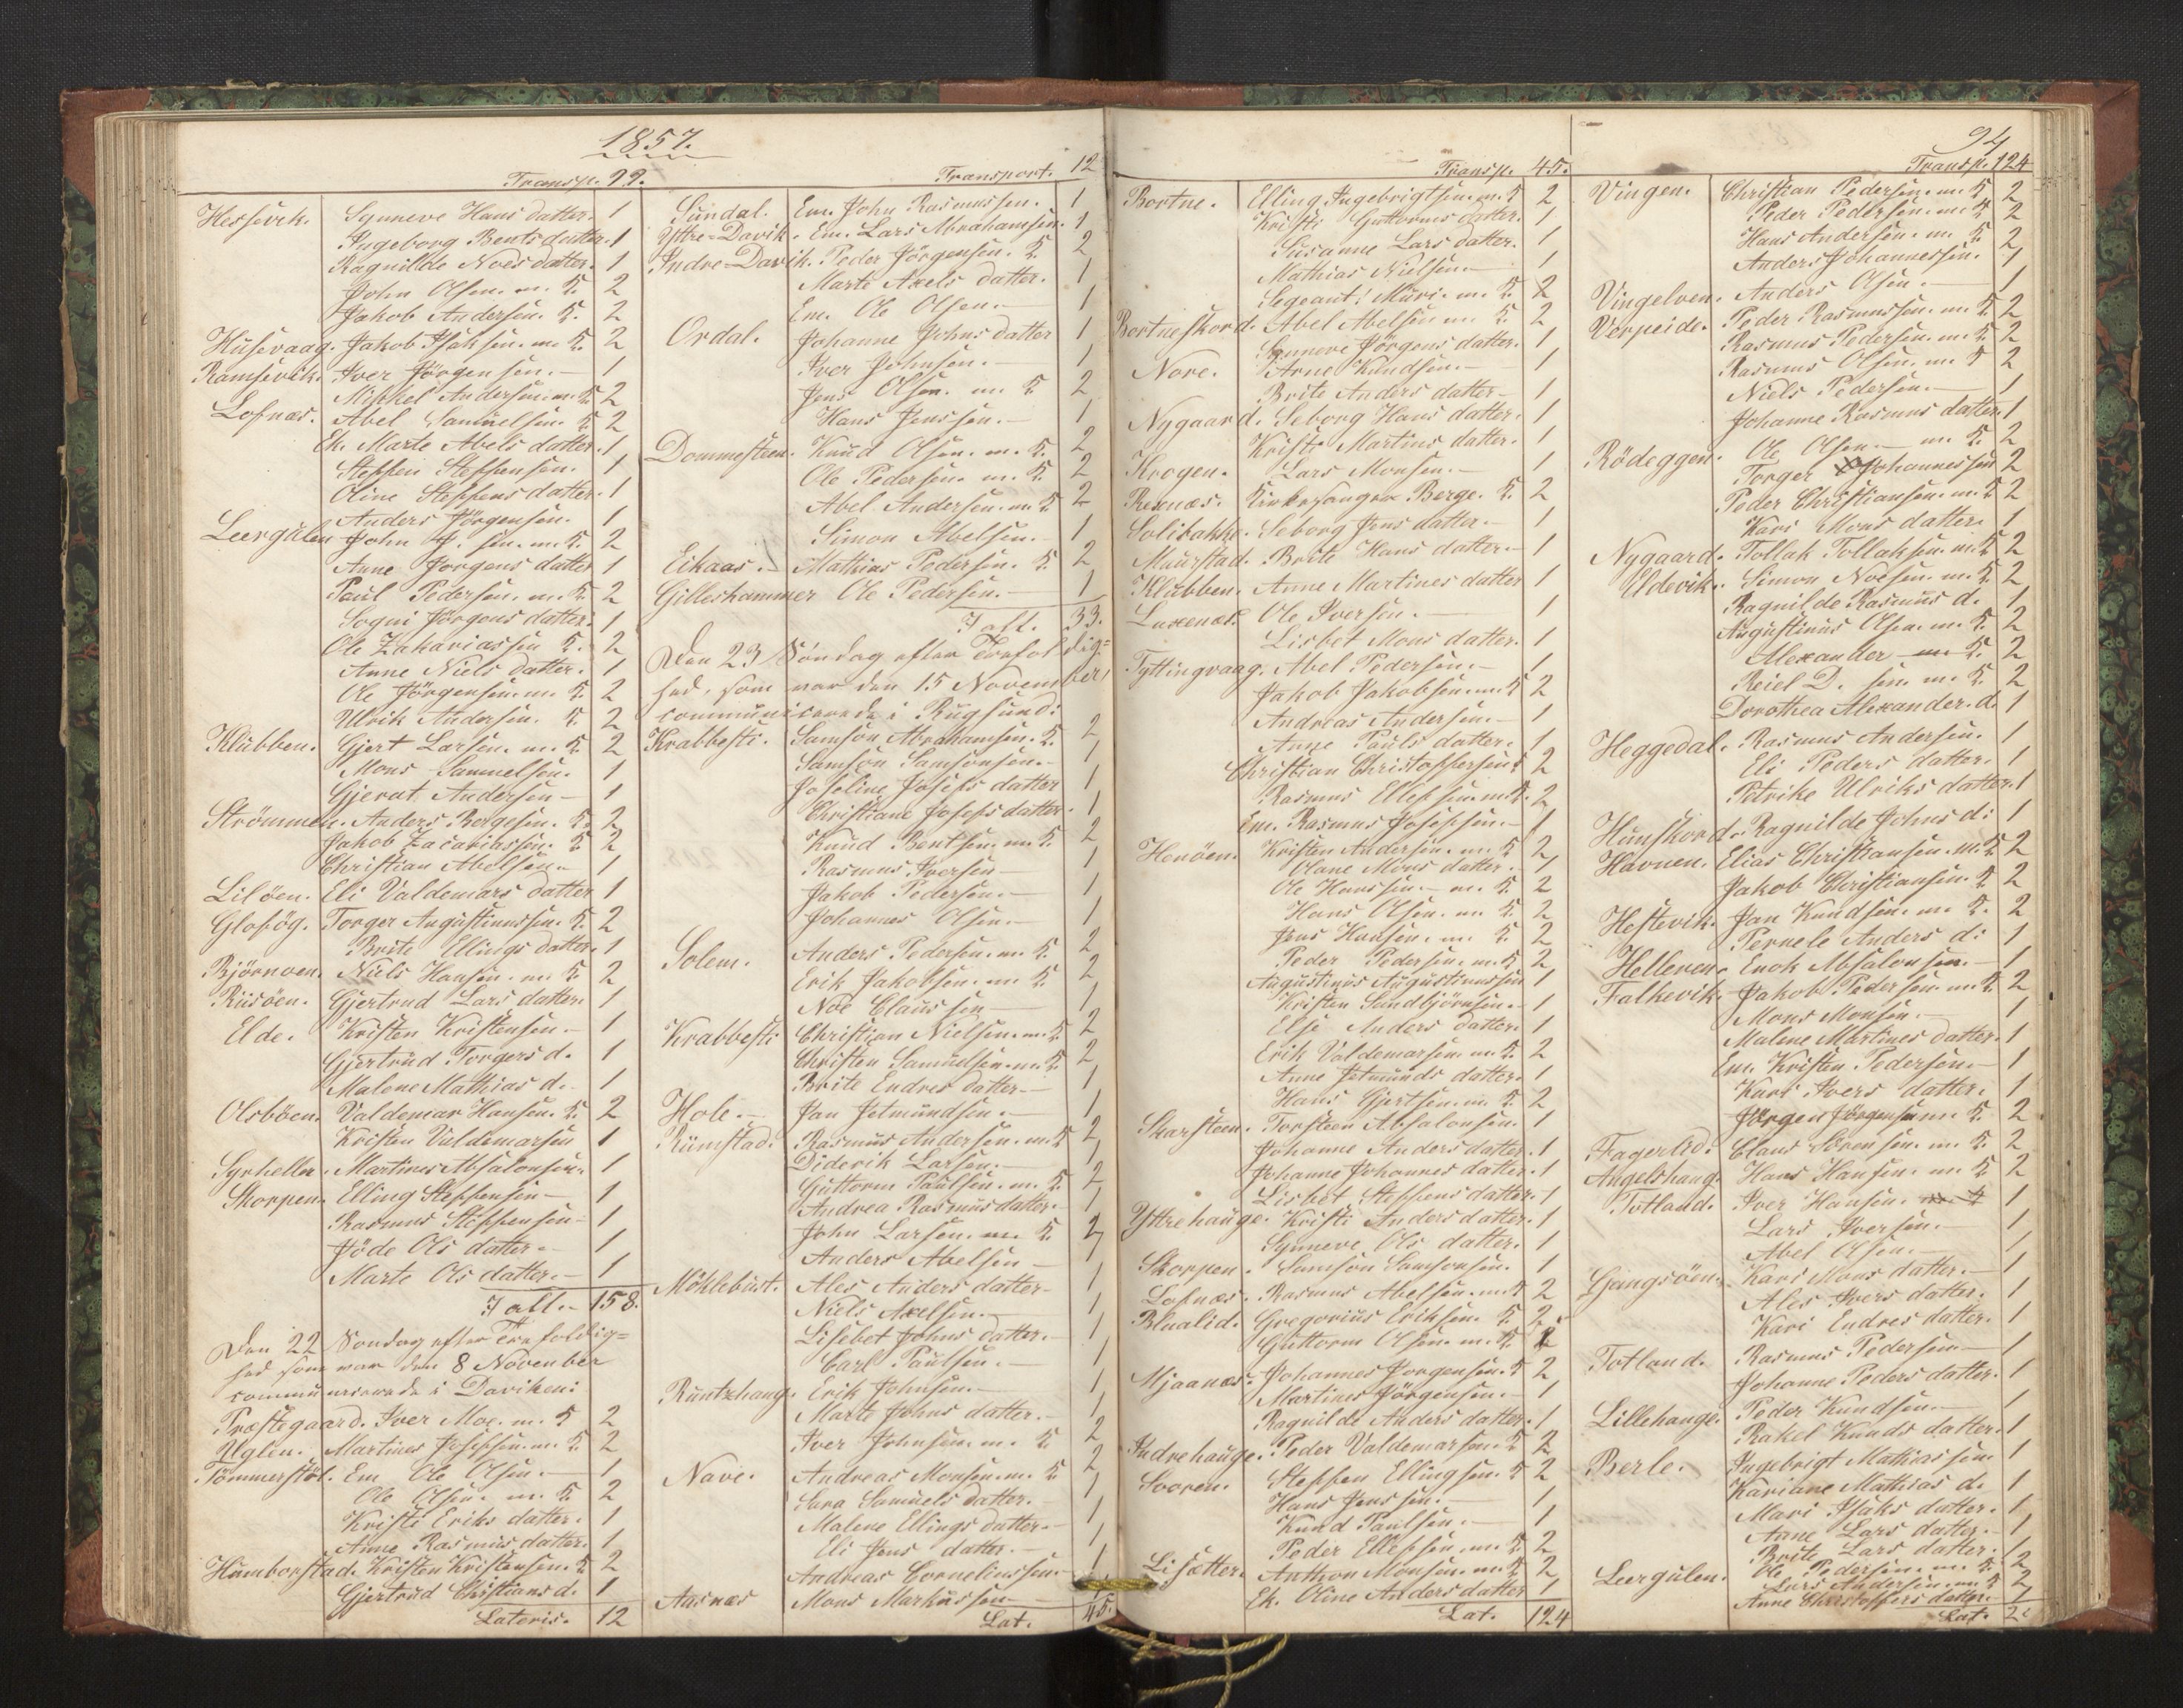 1857.
Transp. 99.
Hessevik. Synneve Hans datter. 1
Ingeborg Bents datter. 1
Ragnillde Noes datter. 1
John Olsen. m. K. 2
Jakob Andersen. K. 2
Husevaag. Jakob Isaksen. m. K. 2
Ramsevik. Iver Jörgensen. — 1
Mikkel Andersen. m. K. 2
Lofnæs. Abel Samuelsen. K. 2
Ek. Marte Abels datter. 1
Steffen Steffensen. 1
Oline Steffens datter. 1
Anders Jörgensen. 1
Leergulen John J. sen. m. K. 2
Anne Jörgens datter 1
Paul Pedersen. m. K. 2
Sogni Jörgens datter. 1
Ole Zakariassen K. 2
Anne Niels datter. 1
Ole Jörgensen m. K. 2
Ulrik Andersen. K. 2
Klubben. Gjert Larsen. m. K. 2
Mons Samuelsen. 1
Gjerat Andersen — 1
Strömmen. Anders Bergesen. K. 2
Jakob Zacariassen. K 2
Christian Abelsen. 1
Lilöen. Eli Valdemars datter 1
Glosög. Torger Augustinussen. K. 2
Brite Ellings datter. 1
Björnøen. Niels Hansen. m. K. 2
Risöen. Gjertrud Lars datter. 1
Elde. Kristen Kristensen. — 1
Gjertrud Torgers d. 1
Malene Mathias d. 1
Olsböen. Valdemar Hansen. K. 2
Kristen Valdemarsen 1
Syrheller. Martines Absalonsen. 1
Skorpen. Elling Steffensen — 1
Rasmus Steffensen — 1
Jöde Ols datter — 1
Marte Ols datter. — 1
Tall. — 158.
Den 22 Söndag efter Trefoldig=
hed som var den 8 November
communicerede i Daviken:
Præstegaard. Iver Moe. m. K 2
Uglen. Martines Josefsen. m. K. 2
Tömmerstöl. Em. Ole Olsen. — 1
Ole Olsen. m. K. 2
Kristi Eriks datter. 1
Anne Rasmus datter. 1
Humborstad. Kristen Kristensen. K 2
Gjertrud Christians d. 1
Lateris. 12
Transport. 12
Sundal. Em. John Rasmussen. 1
Yttre=Davik. Em. Lars Abrahamsen. 1
Indre=Davik. Peder Jörgensen. K. 2
Marte Axels datter. 1
Em. Ole Olsen. — 1
Ordal. Johanne Johns datter 1
Iver Johnsen. — 1
Jens Olsen. m. K. 2
Hans Jenssen. — 1
Dommesteen. Knud Olsen. m. K. 2
Ole Pedersen. m. K. 2
Abel Andersen. m. K 2
Simon Abelsen. — 1
Eikaas. — Mathias Pedersen. K. 2
Gilleshammer Ole Pedersen. — 1
Tall. 33.
Den 23 Söndag efter Trefoldig=
hed, som var den 15 November,
communicerede i Rugsund:
Krabbesti. Samson Abrahamsen. K. 2
Samson Samsonsen. — 1
Joseline Josefs datter 1
Christiane Josefs datter. 1
Knud Bentsen. m. K. 2
Rasmus Iversen — 1
Jakob Pedersen. — 1
Johannes Olsen. — 1
Solem. Anders Pedersen. m. K. 2
Erik Jakobsen. m. K 2
Noe Claussen — 1
Krabbesti Christian Nielsen. m. K. 2
Christen Samuelsen. m. K. 2
Brite Endres datter — 1
Hole. — Jan Jetmundsen. — 1
Rimstad. Rasmus Andersen. m. K 2
Diderik Larsen. — 1
Guttorm Paulsen. m. K. 2
Andrea Rasmus datter. — 1
John Larsen. m. K. 2
Anders Abelsen — 1
Möklebust. Ales Anders datter — 1
Niels Axelsen. — 1
Lisebet Johns datter. — 1
Carl Paulsen. — 1
Runtzhaug. Erik Johnsen. — 1
Marte Johns datter. — 1
Iver Johnsen. m. K. 2
Nave. Andreas Monsen. m. K 2
Sara Samuels datter. — 1
Malene Ellings datter. — 1
Eli Jens datter. — 1
Andreas Corneliussen. 1
Aasnæs Mons Markussen — 1
Lat. 45.
Transp. 45.
Bortne. Elling Ingebrigtsen. m. K 2
Kristi Guttorms datter. 1
Susanne Lars datter. 1
Mathias Nielsen. — 1
Segeant: Müri. m. K. 2
Bortneskord. Abel Abelsen m K. 2
Synneve Jörgens datter. 1
Nore. Arne Knudsen. — 1
Brite Anders datter — 1
Nygaard. Seborg Hans datter. 1
Kristi Martins datter. 1
Krogen. Lars Monsen. — 1
Rexnæs. Kirkesanger Berge. K. 2
Solibakke. Seborg Jens datter. — 1
Maurstad. Brite Hans datter. — 1
Klubben. Anne Martines datter 1
Luxenæs. Ole Iversen. — 1
Lisbet Mons datter. 1
Tyttingvaag. Abel Pedersen. — 1
Jakob Jakobsen. m. K 2
Andreas Andersen. — 1
Anne Pauls datter. 1
Christian Christoffersen. K 2
Rasmus Ellefsen. m. K. 2
Em. Rasmus Josefsen. — 1
Henöen. Kristen Andersen. m. K 2
Olane Mons datter. 1
Ole Hanssen. — m. K. 2
Hans Olsen. m. K. 2
Jens Hansen. m. K. 2
Peder Pedersen. m. K 2
Augustinus Augustinussen 1
Kristen Sandbjörnsen. — 1
Else Anders datter. 1
Erik Valdemarsen. m. K. 2
Anne Jetmunds datter. 1
Hans Gjertsen. m. K 2
Skarsteen. Torsteen Absalonsen. 1
Johanne Anders datter. 1
Johanne Johannes datter. 1
Lisbet Steffens datter. 1
Yttrehauge. Kristi Anders datter. 1
Synneve Ols datter. 1
Skorpen. Samson Samsonsen. 1
Lofnæs. Rasmus Abelsen. m. K 2
Blualid. Gregorius Eriksen. K. 2
Guttorm Olsen. m. K. 2
Mjaanæs. Johannes Jorgensen. K 2
Martines Jörgensen. — 1
Ragnilde Anders datter. 1
Indrehauge. Peder Valdemarsen. K 2
Svoren. Steffen Ellingsen. K 2
Hans Jenssen. — 1
Knud Paulsen. — 1
Peder Ellefsen. m. K 2
Lisætter. Anthon Monsen. m. K 2
Ek. Oline Anders datter 1
Lat. 124
94
Transp. 124
Vingen. Christian Pedersen. m. K 2
Peder Pedersen. m. K 2
Hans Andersen. m. K. 2
Anders Johannessen. 1
Vingelven. Anders Olsen. — 1
Verpeide. Peder Rasmussen. m. K. 2
Rasmus Pedersen. m. K. 2
Rasmus Olsen. m. K 2
Niels Pedersen. — 1
Johanne Rasmus datter. 1
Rödeggen. Ole Olsen. — m. K. 2
Torger Johannessen 2
Peder Christiansen. m. K 2
Kari Mons datter. 1
Nygaard. Tollak Tollaksen. m. K 2
Udevik. Simon Noesen. m. K. 2
Ragnilde Rasmus d. 1
Augustinus Olsen. m. K. 2
Alexander m K. 2
Reiel D. sen. m. K. 2
Dorothea Alexander. d. 1
Heggedal. Rasmus Andersen. 1
Eli Peders datter. 1
Petrike Ulriks datter. 1
Hunskord. Ragnilde Johns d: 1
Havnen. Elias Christiansen. m. K 2
Jakob Christiansen. K 2
Hestevik. Jan Knudsen. m. K. 2
Pernele Anders d: 1
Helleren. Enok Absalonsen. — 1
Falkevik. Jakob Pedersen. m. K 2
Mons Monsen. — 1
Malene Martines datter. 1
Em. Kristen Pedersen. — 1
Kari Ivers datter. 1
Jörgen Jörgensen m. K. 2
Fagerlid. Claus Sörensen. m. K. 2
Angelshaug. Hans Hansen. m. K 2
Totland. Iver Hansen. m. K 1
Lars Iversen. — 1
Abel Olsen. — 1
Gangsöen. Kari Mons datter. — 1
Ales Ivers datter. 1
Kari Endres datter. 1
Totland. Rasmus Pedersen — 1
Johanne Peders datter. 1
Lillehauge. Peder Knudsen. — 1
Rakel Knuds datter. 1
Berle. Ingebrigt Mathiassen. 1
Kariane Mathias d. 1
Mari Isaks datter. 1
Anne Lars datter. — 1
Brite Lars datter. 1
Leergulen. Ole Pedersen. m. K. 2
Lars Andersen. m. K 2
Anne Christoffers datter. 1
Lat. 2